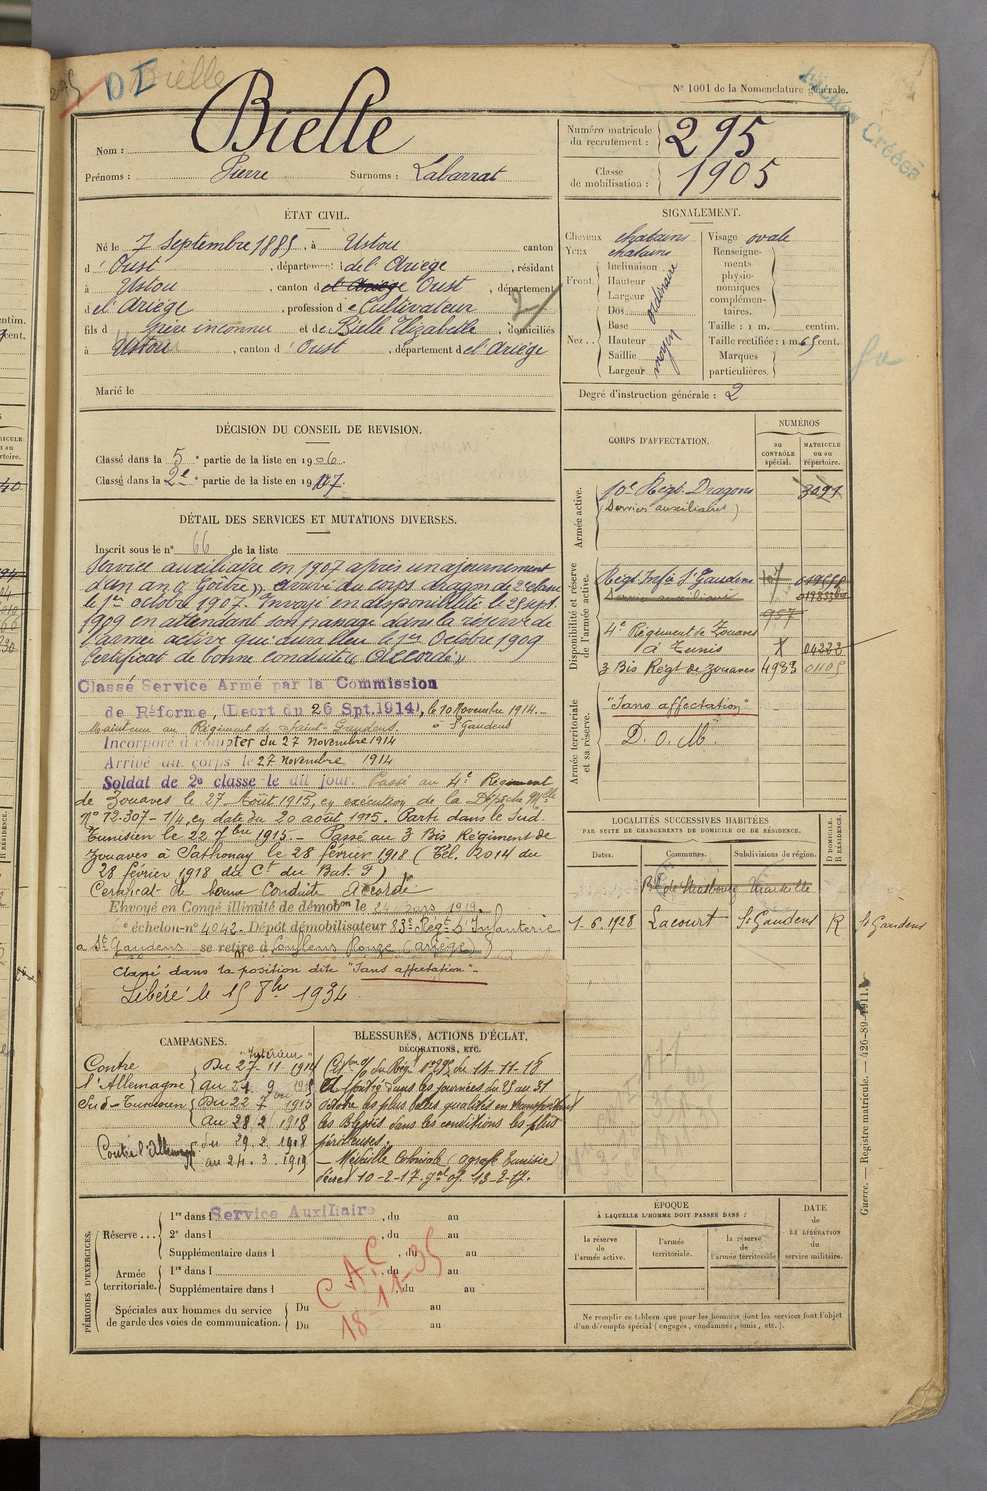 295
D I
Bielle
N° 1001 de la Nomenclature générale.
Nom : Bielle
Prénoms : Pierre Surnoms : Labarrat
Numéro matricule du recrutement : 295
Classe de mobilisation : 1905
ÉTAT CIVIL.
Né le 7 Septembre 1885, à Ustou canton
d' Oust, département de l'Ariège, résidant
à Ustou, canton d Oust, département
d el'Ariège, profession de Cultivateur
fils d père inconnu et de Bielle Elizabeth, domiciliés
à Ustou, canton d'Oust, département d el'Ariège
Marié le
2
SIGNALEMENT.
Cheveux chatains
Yeux chatains
Front. Inclinaison
Hauteur
Largeur
ordinaire
Nez. Dos
Base
Hauteur
Saillie
Largeur
moyen
Visage ovale
Renseignements physionomiques complémentaires.
Taille : 1 m. centim.
Taille rectifiée : 1 m. 65 cent.
Marques particulières.
Degré d'instruction générale : 2
DÉCISION DU CONSEIL DE REVISION.
Classé dans la 5e partie de la liste en 1906.
Classé dans la 2e partie de la liste en 1907
DÉTAIL DES SERVICES ET MUTATIONS DIVERSES.
Inscrit sous le n° 66 de la liste
Service auxiliaire en 1907 après un ajournement
d'un an « Goître ». Arrivé au corps dragon de 2e classe
le 1er octobre 1907. Envoyé en disponibilité le 25 sept.
1909 en attendant son passage dans la réserve de
l'armée active qui aura lieu le 1er Octobre 1909
Certificat de bonne conduite « Accordé »
Classé Service Armé par la Commission
de Réforme, (Décrt du 26 Spt. 1914), le 10 Novembre 1914.
Maintenu au Régiment de Saint-Gaudens. à St Gaudens
Incorporé à compter du 27 novembre 1914
Arrivé au corps le 27 novembre 1914
Soldat de 2e classe le dit jour. Passé au 4e Régiment
de Zouaves le 27 Août 1915, en exécution de la Dépêche Mlle
N° 12.307-1/4, en date du 20 août 1915. Parti dans le Sud
Tunisien le 22 7bre 1915. Passé au 3 Bis Régiment de
Zouaves à Sathonay le 28 février 1918 (Tél. 2014 du
28 février 1918 du Ct du Bat. F)
Certificat de bonne conduite Accordé
Envoyé en Congé illimité de démobon le 24 Mars 1919.
6e échelon-n° 4042. Dépôt démobilisateur 83e Regt d'Infanterie
a St Gaudens se retire à Conflens Pouze (Ariège)
Classé dans la position dite "Sans affectation"
Libéré le 15 8bre 1934
CORPS D'AFFECTATION.
NUMÉROS
au CONTRÔLE spécial.
MATRICULE ou au répertoire.
Armée active.
10e Régt. Dragons 3091
(Service auxiliaire)
Disponibilité et réserve de l'armée active.
Régt. Infie St Gaudens
Service auxiliaire
957
4e Régiment de Zouaves
à Tunis 04223
3 Bis Régt de Zouaves 4933 01105
Armée territoriale et sa réserve.
"Sans affectation"
D. O. M.
LOCALITÉS SUCCESSIVES HABITÉES
PAR SUITE DE CHANGEMENTS DE DOMICILE OU DE RÉSIDENCE.
Dates. Communes. Subdivisions de région. D DOMICILE. R RÉSIDENCE.
Bd de Strasbourg Marseille
1-6-1928 Lacourt St Gaudens R St Gaudens
CAMPAGNES.
Contre "Intérieur" Du 27-11-1914
l'Allemagne au 21 9 1915
Sud-Tunisien Du 22 7bre 1915
au 28 2 1918
Contre l'Allemagne du 29. 2. 1918
au 24. 3. 1919
BLESSURES, ACTIONS D'ÉCLAT,
DÉCORATIONS, ETC.
du 11-11-18
dans les journées du 25 au 31
octobre les plus belles qualités en transportant
les Blessés dans les conditions les plus
périlleuses.
Médaille Coloniale (agrafe Tunisie)
Décret 10-2-17. Jal of. 13-2-17.
PÉRIODES D'EXERCICES.
Réserve... 1re dans l Service Auxiliaire, du au
2e dans l, du au
Supplémentaire dans l, du au
Armée territoriale. 1re dans l, du au
Supplémentaire dans l, du au
Spéciales aux hommes du service de garde des voies de communication. Du au
Du au
C.A.C
18-11-35
ÉPOQUE
À LAQUELLE L'HOMME DOIT PASSER DANS :
la réserve de l'armée active.
l'armée territoriale.
la réserve de l'armée territoriale
DATE de LA LIBÉRATION du service militaire.
Ne remplir ce tableau que pour les hommes dont les services font l'objet
d'un décompte spécial (engagés, condamnés, omis, etc.).
Guerre. — Registre matricule. — 426-89-1911.